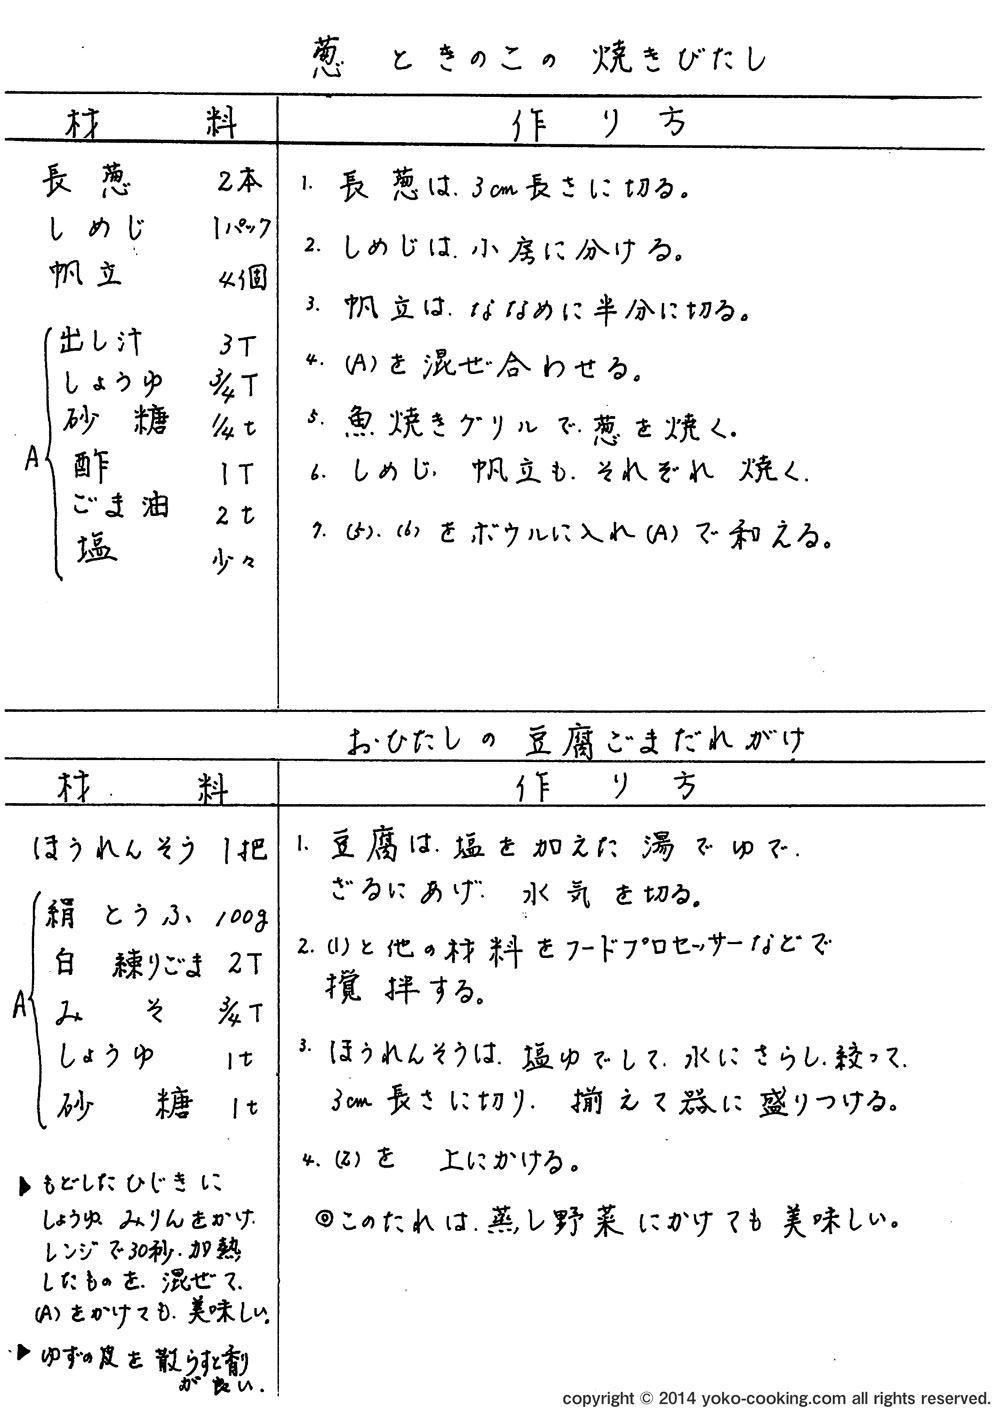 葱 ときのこの 焼きびたし
材 料
作 り 方
長 葱 2本
しめじ 1パック
帆立 4個
A
出し汁 3T
しょうゆ 3/4T
砂 糖 1/4t
酢 1T
ごま油 2t
塩 少々
1. 長葱は、3cm長さに切る。
2. しめじは、小房に分ける。
3. 帆立は、ななめに半分に切る。
4. (A)を混ぜ合わせる。
5. 魚焼きグリルで、葱を焼く。
6. しめじ、帆立も、それぞれ 焼く、
7. (5)、(6)をボウルに入れ(A)で和える。
おひたしの 豆腐ごまだれがけ
材 料
作 り 方
ほうれんそう 1把
A
絹とうふ 100g
白 練りごま 2T
みそ 3/4T
しょうゆ 1t
砂 糖 1t
▶ もどしたひじきに
しょうゆ、みりんをかけ、
レンジで30秒、加熱
したものを、混ぜて、
(A)をかけても、美味しい。
▶ ゆずの皮を散らすと香り
が良い、
1. 豆腐は、塩を加えた湯でゆで、
ざるにあげ、水気を切る。
2. (1)と他の材料をフードプロセッサーなどで
撹拌する。
3. ほうれんそうは、塩ゆでして、水にさらし、絞って、
3cm長さに切り、揃えて器に盛りつける。
4. (2)を 上にかける。
◎このたれは、蒸し野菜にかけても美味しい。
copyright © 2014 yoko-cooking.com all rights reserved.